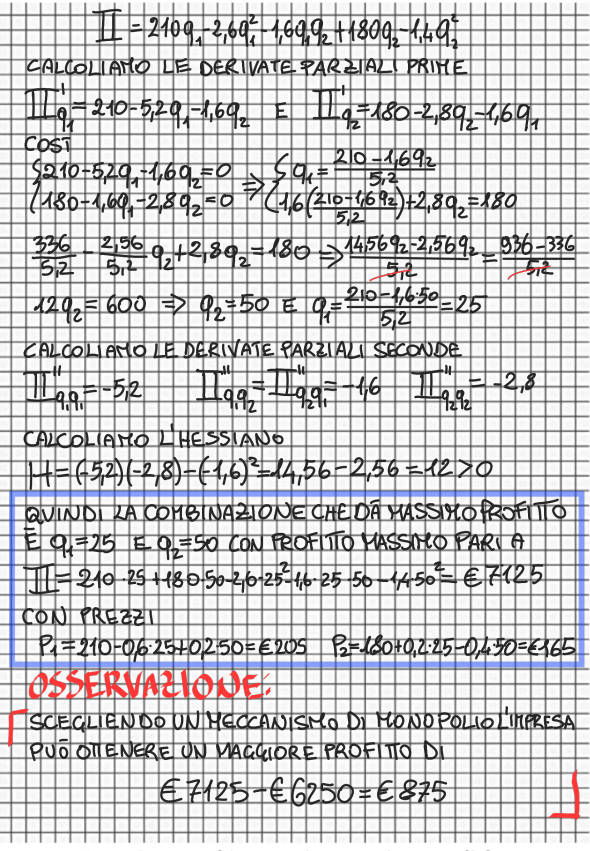 Π = 210q₁-2,6q₁²-1,6q₁q₂+180q₂-1,4q₂²
CALCOLIAMO LE DERIVATE PARZIALI PRIME
Π'q₁ = 210-5,2q₁-1,6q₂ E Π'q₂ = 180-2,8q₂-1,6q₁
COSÌ
{210-5,2q₁-1,6q₂=0 ⇒ {q₁ = (210-1,6q₂)/5,2
{180-1,6q₁-2,8q₂=0 {1,6((210-1,6q₂)/5,2)+2,8q₂=180
336/5,2 - 2,56/5,2 q₂+2,8q₂=180 ⇒ (14,56q₂-2,56q₂)/5,2 = (936-336)/5,2
12q₂ = 600 ⇒ q₂=50 E q₁ = (210-1,6·50)/5,2 = 25
CALCOLIAMO LE DERIVATE PARZIALI SECONDE
Π''q₁q₁ = -5,2 Π''q₁q₂ = Π''q₂q₁ = -1,6 Π''q₂q₂ = -2,8
CALCOLIAMO L'HESSIANO
H = (-5,2)(-2,8)-(-1,6)²=14,56-2,56=12>0
QUINDI LA COMBINAZIONE CHE DÀ MASSIMO PROFITTO
È q₁=25 E q₂=50 CON PROFITTO MASSIMO PARI A
Π = 210·25+180·50-2,6·25²-1,6·25·50-1,4·50² = €7125
CON PREZZI
P₁=210-0,6·25+0,2·50=€205 P₂=180+0,2·25-0,4·50=€165
OSSERVAZIONE:
SCEGLIENDO UN MECCANISMO DI MONOPOLIO L'IMPRESA
PUÒ OTTENERE UN MAGGIORE PROFITTO DI
€7125-€6250=€875